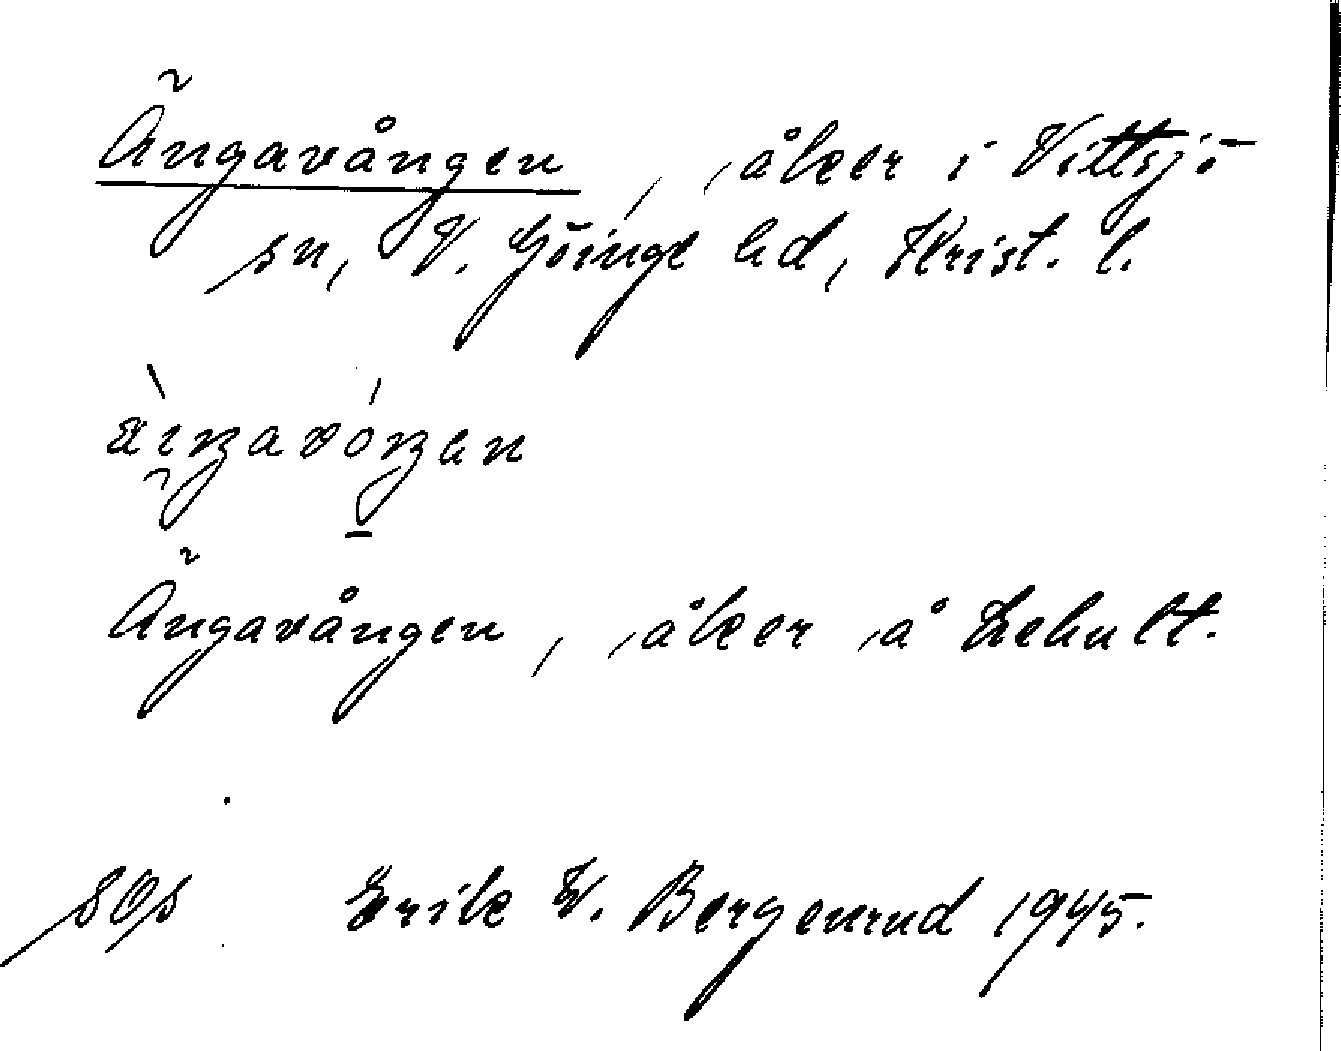 Ängavången, åker i Vittsjö
sn, V. Göinge hd, Krist. l.
Ängavången, åker å Lehult.
sOs Erik W. Bergenrud 1945.